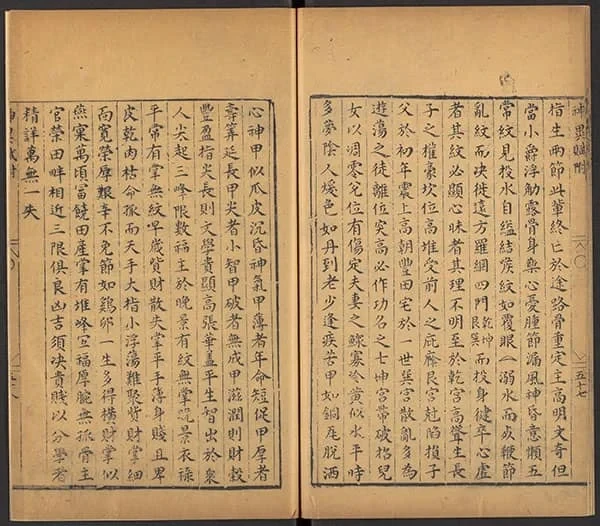 神異賦附
指生两節此輩終亡於途路骨重定主高明文奇但
當小爵浮觔露骨身與心憂腫節漏風神昏意懶五
常紋見投水自縊結喉紋如覆眼溺水而鞭節
亂紋而决徙遠方羅網四門乾坤艮巽而投身健卒心虛
者其紋必顯心昧者其理不明至於乾宮高聳生長
子之權豪坎位高堆受前人之庇廕艮宮尅陷損子
父於初年震上高朝豐田宅於一世巽宮散亂多為
遊蕩之徒離位突高必作功名之七坤宮帶破招兒
女以凋零兌位有傷定夫妻之鰥寡冷黄似水平時
多夢陰人煖色如丹到老少逢疾苦甲如銅瓦脫洒
心神甲似瓜皮沉昏神氣甲薄者年命短促甲厚者
壽筭延長甲尖者小智甲破者無成甲滋潤則財穀
豐盈指尖長則文學貴顯高張華蓋平生智出於衆
人尖起三峰限數福主於晚景有紋無掌晚景衣祿
平常有掌無紋早歲貲財散失掌平手薄身賤且卑
皮乾肉枯命孤而夭手大指小浮蕩難聚貲財掌細
而寬榮厚艱辛不免節如鷄卵一生多得橫財掌似
燕窠萬頃富饒田產掌有堆峰宝福厚腕無孤骨主
官榮田畔相近三限俱良凶吉須决貴賤以分學者
精詳萬無一失